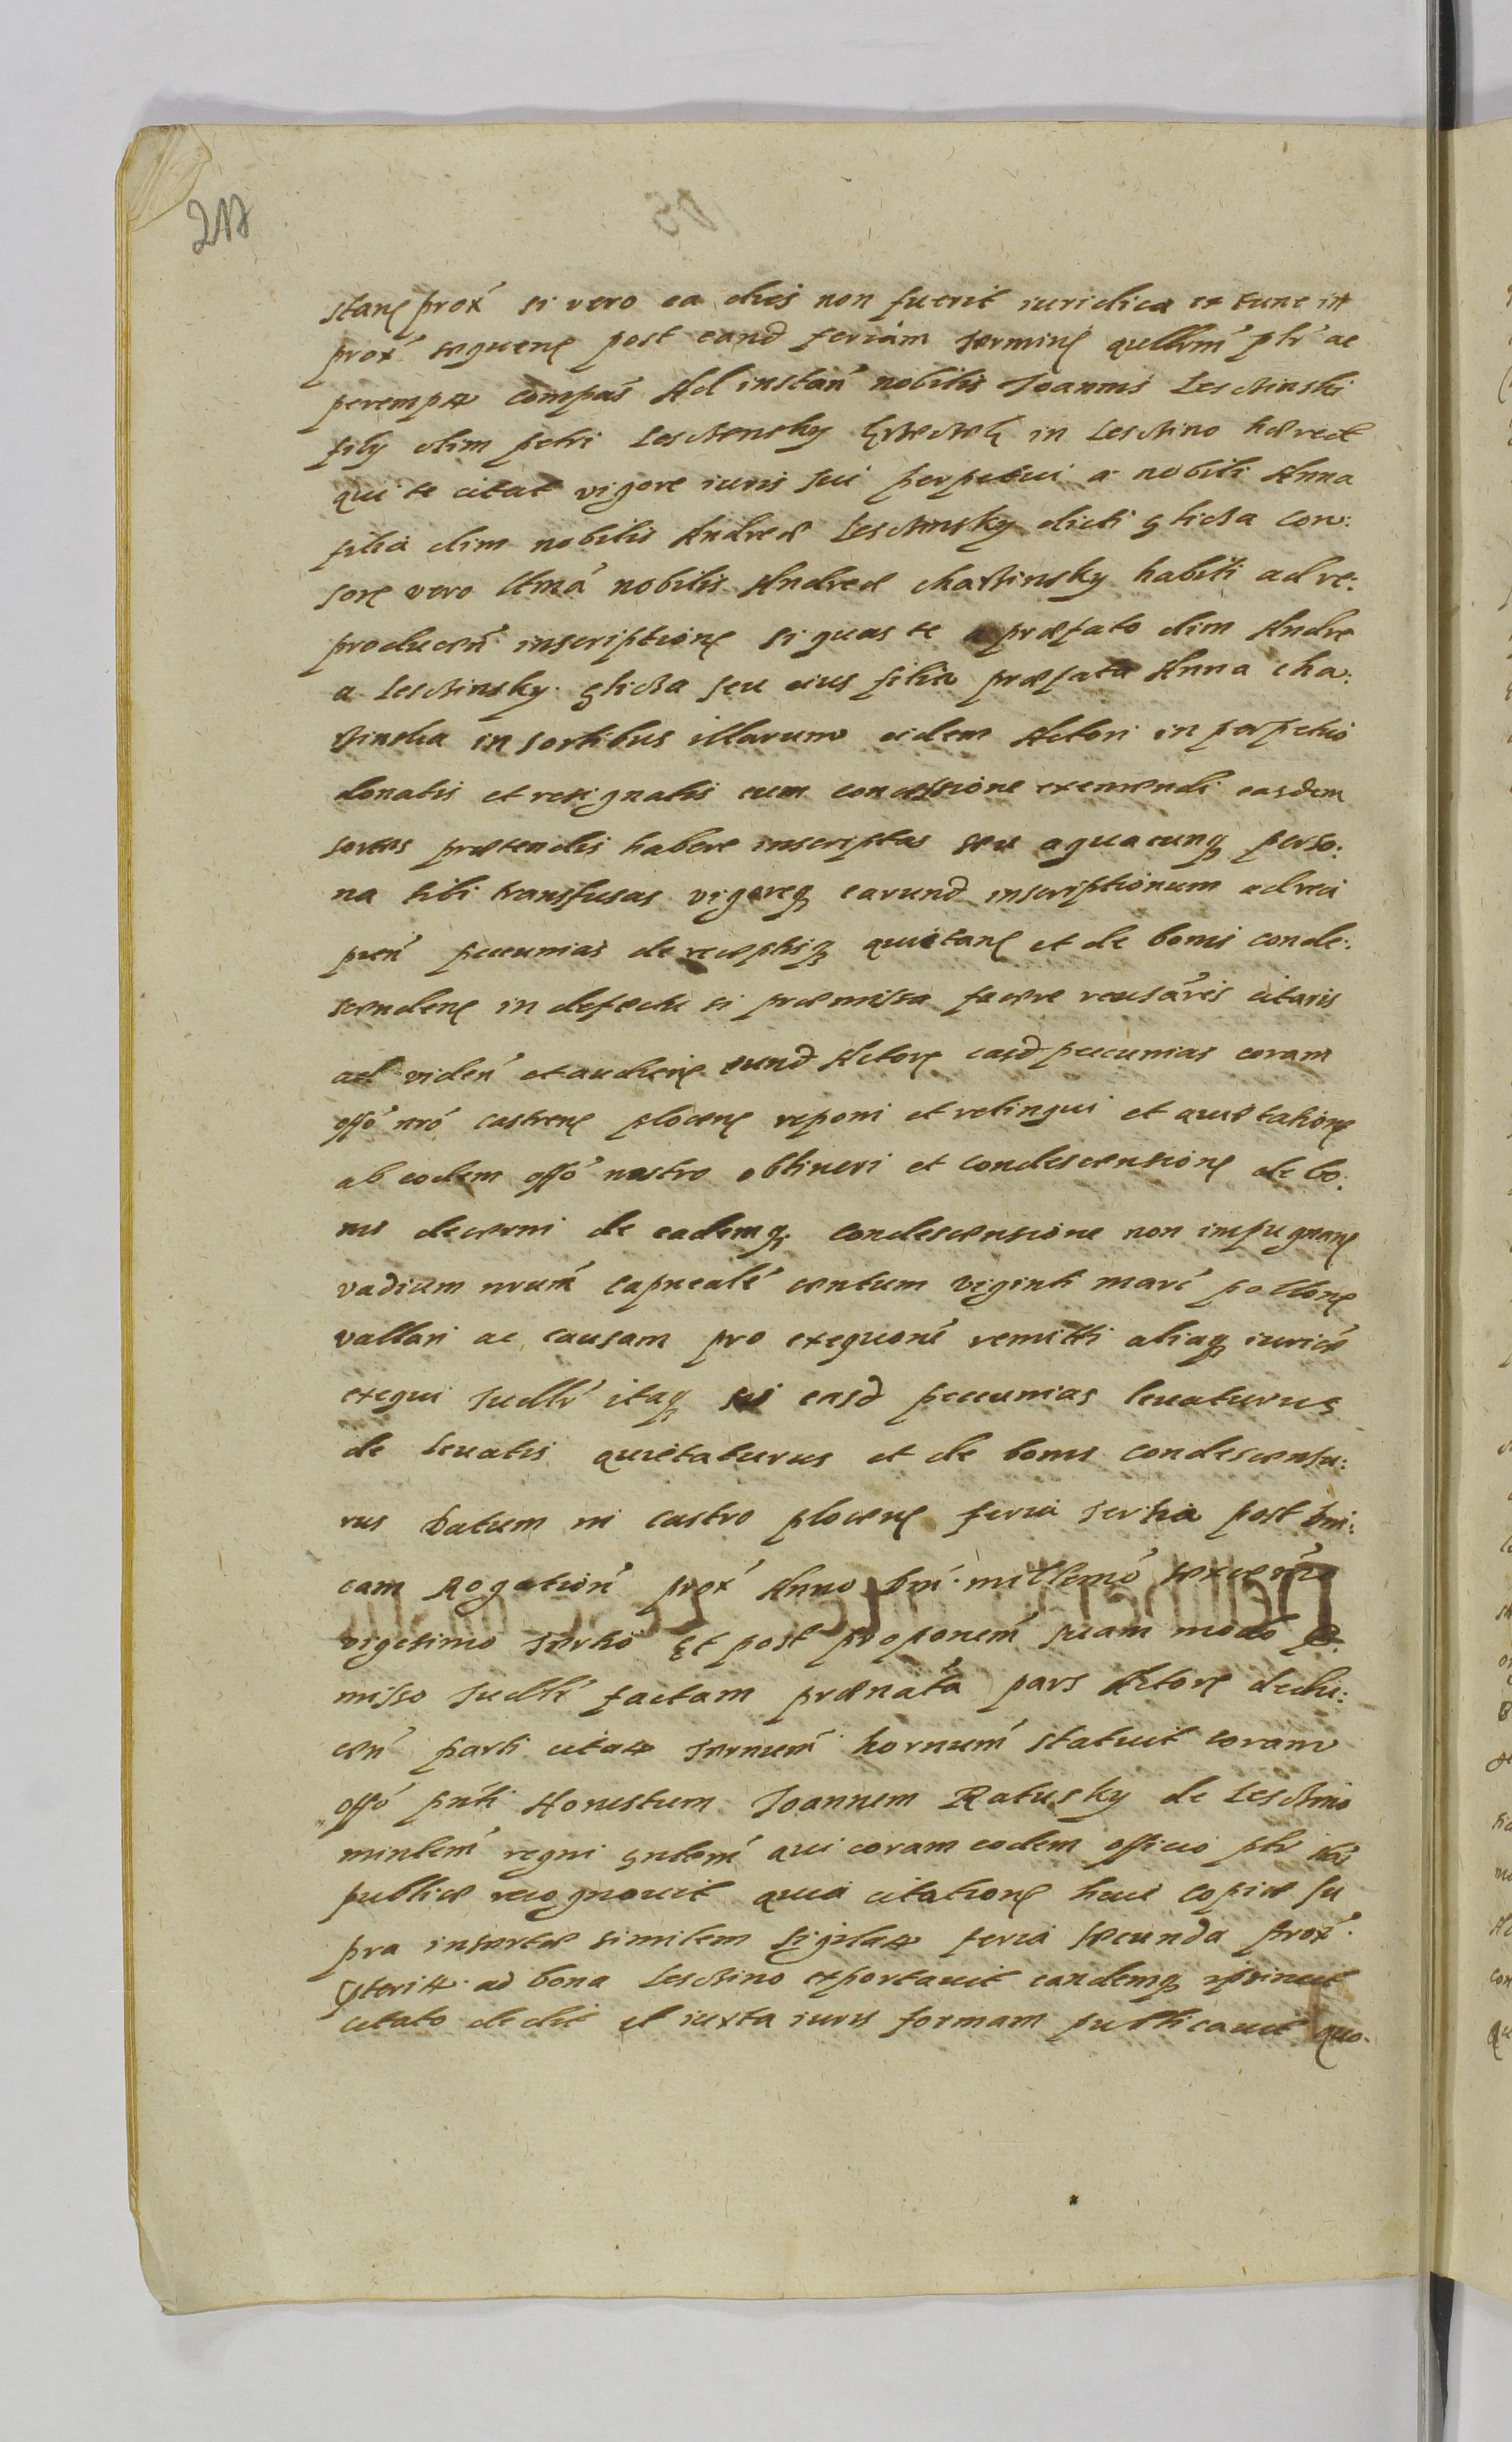 217
stanς prox̃ si vero ea dies non fuerit iuridica ex tunc in
prox̃ sequenς post eand feriam terminς ptr̃ ac
perempt compás Ad instań nobilis Joannis Lesczinski
filÿ olim petri Lesczensky in Lesczino hæred
qui te citat vigore iuris sui perpetui a nobili Anna
filia olim nobilis Andreæ Lesczinsky dicti con:
sorς vero ltmá nobilis Andreæ chaszinsky habiti ad re:
producen̄ inscriptionς si quas te a præfato olim Andre
a Lesczinsky seu eius filia præfata Anna cha:
szinska in sortibus illarum eidem Actori in perpetuo
donatis et resignatis cum concessione exemendi easdem
sortes prætendis habere inscriptas seu a quacunq perso:
na tibi transfusas vigoreq earund inscriptionum ad reci
pień pecunias de receptisq quietanς et de bonis conde:
scendenς in defectu si præmissa facere recusáris citaris
ad viden̄ et audienς eund Actorς easd pecunias coram
offó nró castrenς plocenς reponi et relinqui et quietationς
ab eodem offó nostro obtineri et condescensionς de bo:
nis decerni de eademq condescensione non impugnanς
vadium nrum̄ capneale centum viginti marć pollonς
vallari ac causam pro exequone remitti aliaq iurice
exequi Judltr̃ itaq sis easd pecunias levaturus
de levatis quietaturus et de bonis condescensu:
rus Datum in castro plocenς feria tertia post Dni:
cam Rogation̄ prox̃ Anno Dni millemo sexcenmo
vigesimo tertio Et post proponem suam modo præ
misso Judltr̃ factam prænata pars Actorς dedu:
cen̄ parti citatæ termum̄ hornum̄ statuit coram
offó pnti Honestum Joannem Ratusky de Lesczino
mintem̄ regni qui coram eodem officio
publice recognovit quia citationς huic copiæ su
pra insertæ similem sigilat feria secunda prox̃
ad bona Lesczino exportavit eandemq
citato dedit et iuxta iuris formam publicavit quo.